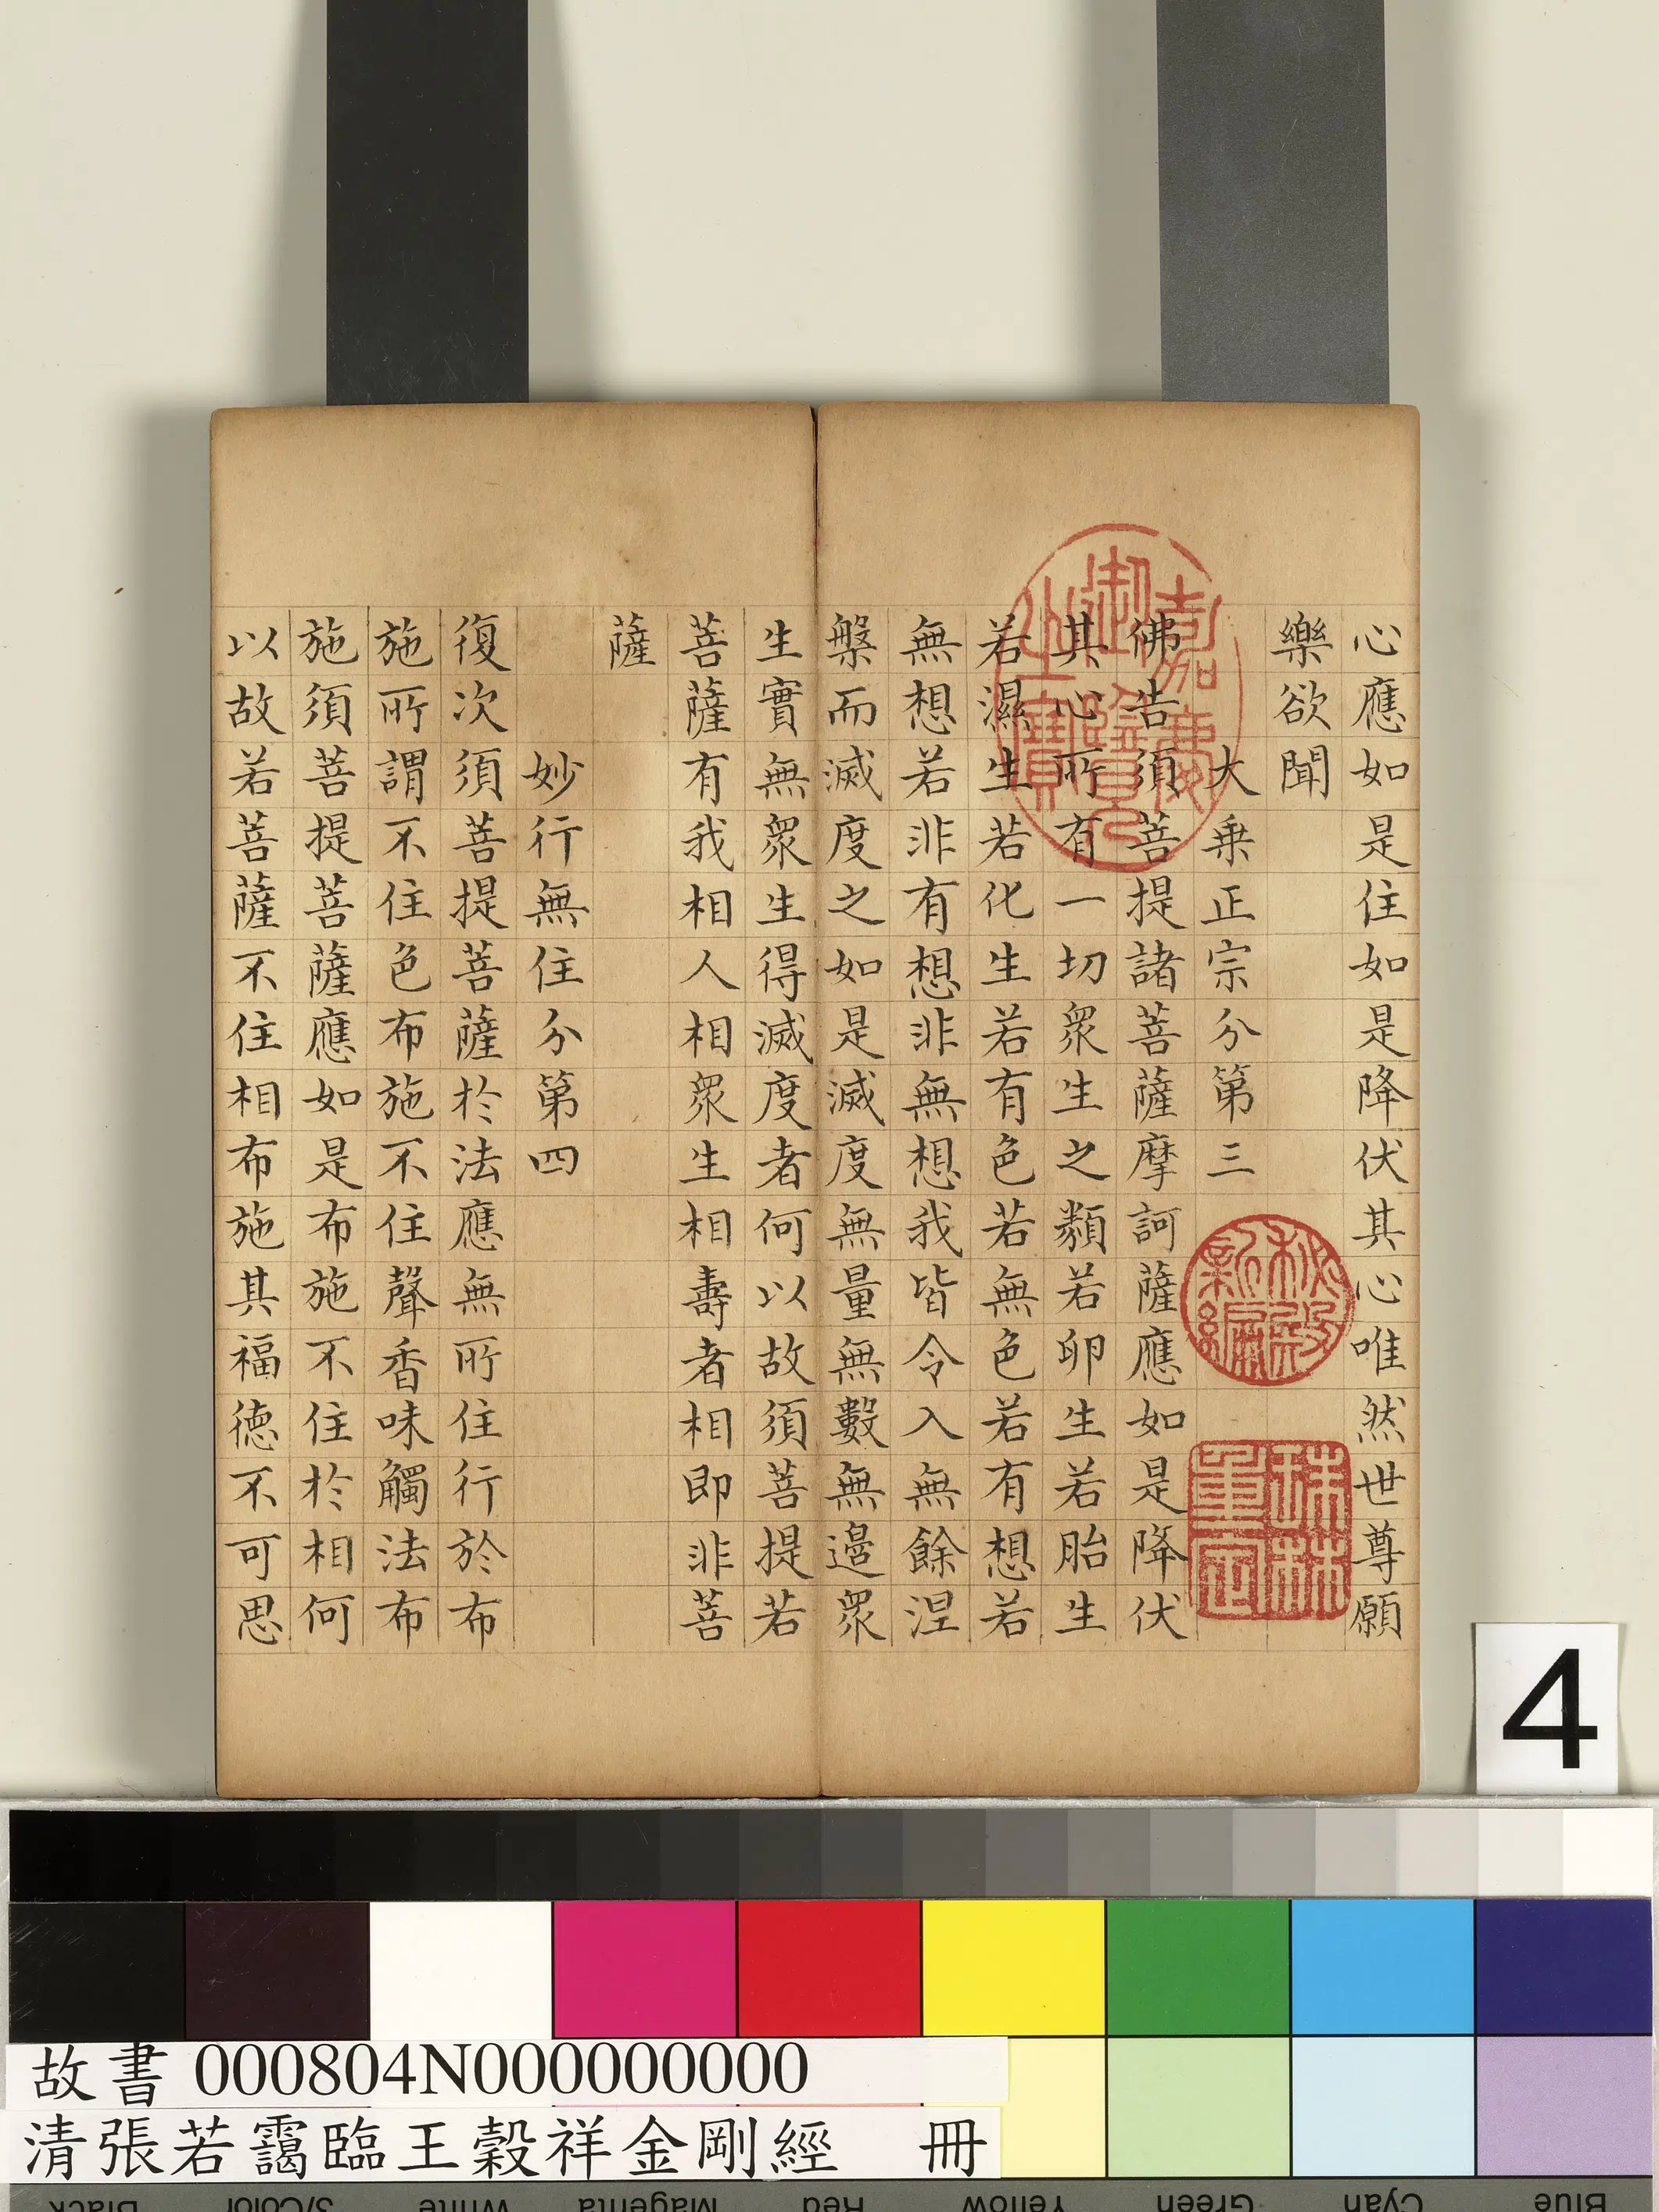 心應如是住如是降伏其心唯然世尊願
樂欲聞
大乗正宗分第三
佛告須菩提諸菩薩摩訶薩應如是降伏
其心所有一切衆生之類若卵生若胎生
若濕生若化生若有色若無色若有想若
無想若非有想非無想我皆令入無餘涅
槃而滅度之如是滅度無量無數無邉衆
生實無衆生得滅度者何以故須菩提若
菩薩有我相人相衆生相壽者相即非菩
薩
妙行無住分第四
復次須菩提菩薩於法應無所住行於布
施所謂不住色布施不住聲香味觸法布
施須菩提菩薩應如是布施不住於相何
以故若菩薩不住相布施其福德不可思
嘉慶御覽之寶
秘殿新編
珠林重定
4
故書 000804N000000000
清張若靄臨王穀祥金剛經 冊
Black
3/Color
White
Magenta
Red
Yellow
Green
Cyan
Blue